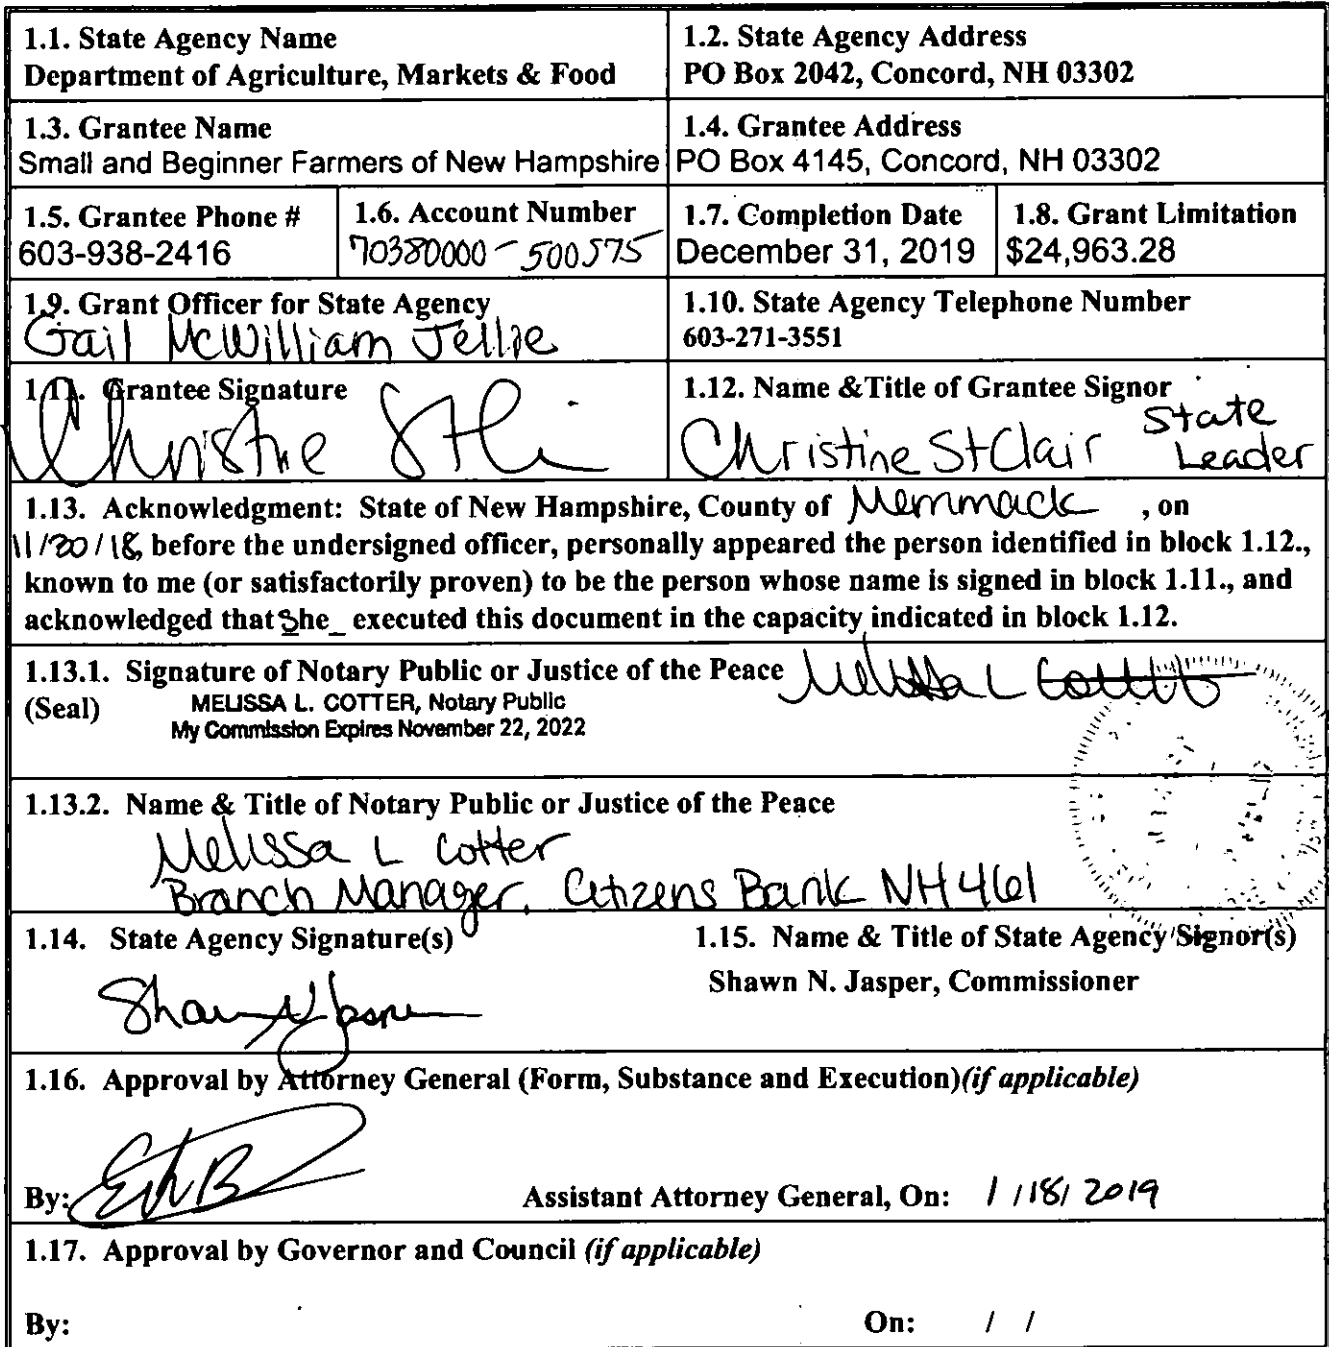 1.1. State Agency Name
Department of Agriculture, Markets & Food
1.2. State Agency Address
PO Box 2042, Concord, NH 03302
1.3. Grantee Name
Small and Beginner Farmers of New Hampshire
1.4. Grantee Address
PO Box 4145, Concord, NH 03302
1.5. Grantee Phone #
603-938-2416
1.6. Account Number
70380000-500575
1.7. Completion Date
December 31, 2019
1.8. Grant Limitation
$24,963.28
1.9. Grant Officer for State Agency
Gail McWilliam Jellie
1.10. State Agency Telephone Number
603-271-3551
1.11. Grantee Signature
Christine
1.12. Name &Title of Grantee Signor
Christine StClair State
Leader
1.13. Acknowledgment: State of New Hampshire, County of Merrimack , on
11/20/18, before the undersigned officer, personally appeared the person identified in block 1.12.,
known to me (or satisfactorily proven) to be the person whose name is signed in block 1.11., and
acknowledged that She_ executed this document in the capacity indicated in block 1.12.
1.13.1. Signature of Notary Public or Justice of the Peace Melissa L Cotter
(Seal) MELISSA L. COTTER, Notary Public
My Commission Expires November 22, 2022
1.13.2. Name & Title of Notary Public or Justice of the Peace
Melissa L Cotter
Branch Manager, Citizens Bank NH 461
1.14. State Agency Signature(s)
Shawn N Jasper
1.15. Name & Title of State Agency Signor(s)
Shawn N. Jasper, Commissioner
1.16. Approval by Attorney General (Form, Substance and Execution)(if applicable)
By: Assistant Attorney General, On: 1 /18/ 2019
1.17. Approval by Governor and Council (if applicable)
By: On: / /